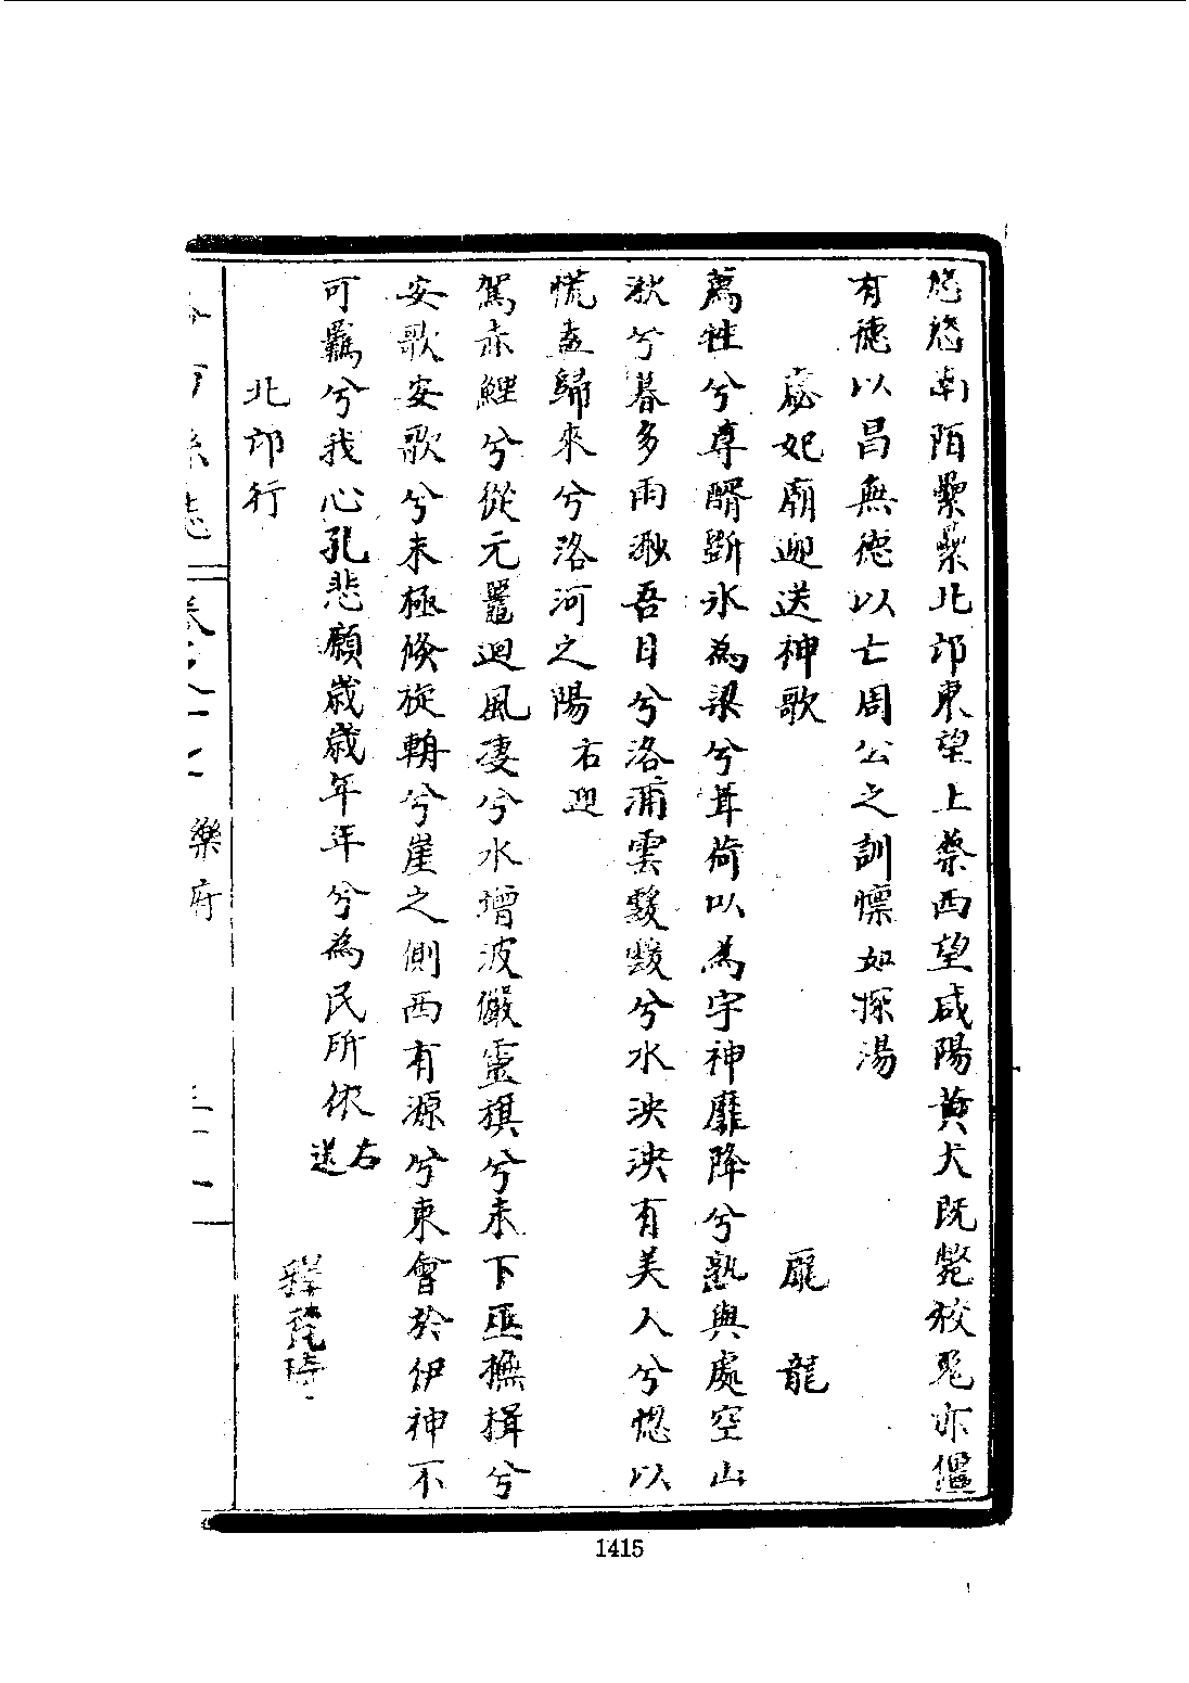 悠悠南陌纍纍北邙東望上蔡西望咸陽黄犬既斃狡兎亦僵
有德以昌無德以亡周公之訓懍如探湯
宓妃廟迎送神歌　龎龍
薦牲兮尊醑斷氷為梁兮葺荷以為宇神靡降兮孰與處空山
湫兮暮多雨渺吾目兮洛浦雲靉靉兮水泱泱有美人兮惚以
慌盍歸來兮洛河之陽右迎
駕赤鯉兮從元鼉迴風淒兮水增波儼靈旗兮未下巫撫楫兮
安歌安歌兮未極倏旋輈兮崖之側西有源兮東會於伊神不
可羈兮我心孔悲願歲歲年年兮為民所依右送
北邙行　釋梵琦
樂府
1415